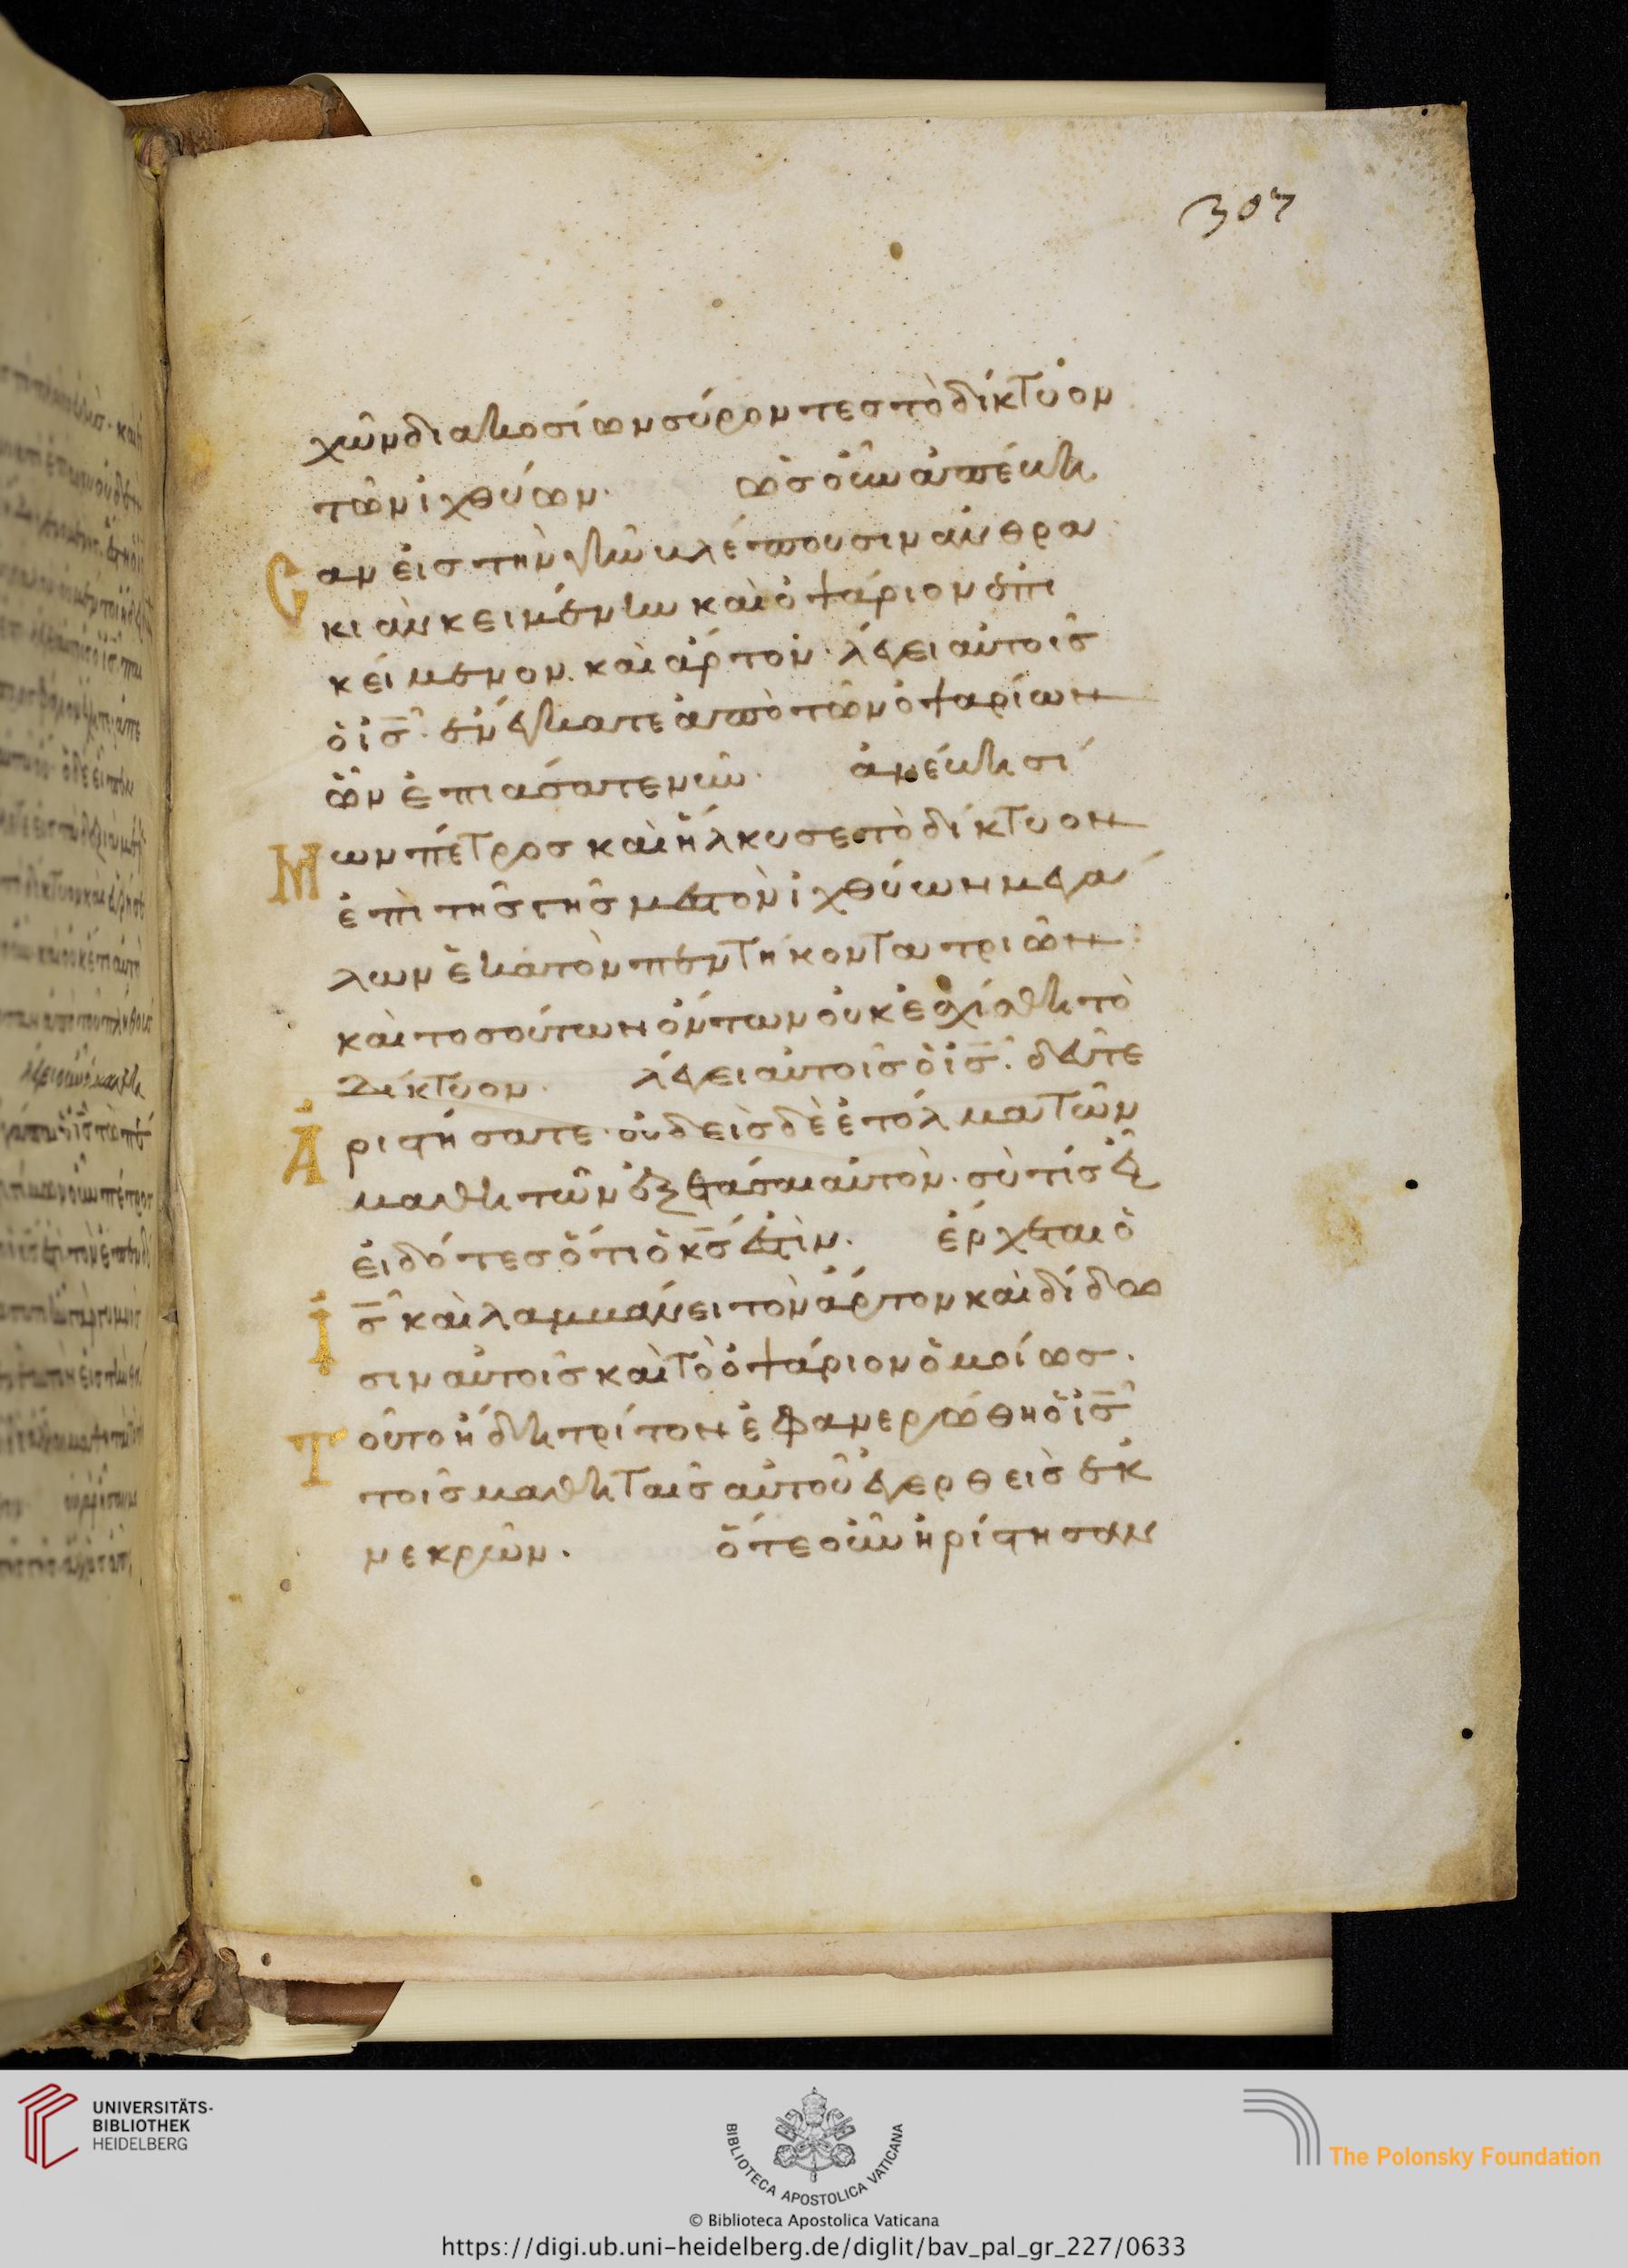 307
χῶν διακοσίων σύροντες τὸ δίκτυον
τῶν ἰχθύων· ὡς οὖν ἀπέβη
Σαν εἰς τὴν γῆν βλέπουσιν ἀνθρα
κιὰν κειμένην καὶ ὀψάριον ἐπι
κείμενον. καὶ ἄρτον· λέγει αὐτοῖς
ὁ ις· ἐνέγκατε ἀπὸ τῶν ὀψαρίων
ὧν ἐπιάσατε νῦν· ἀνέβη σί
Μων πέτρος καὶ ἥλκυσε τὸ δίκτυον
ἐπὶ τῆς γῆς μεστὸν ἰχθύων μεγά
λων ἑκατὸν πεντήκοντα τριῶν·
καὶ τοσούτων ὄντων οὐκ ἐσχίσθη τὸ
δίκτυον· λέγει αὐτοῖς ὁ ις· δεῦτε
Ἀριστήσατε· οὐδεὶς δὲ ἐτόλμα τῶν
μαθητῶν ἐξετάσαι αὐτὸν· σὺ τίς εἶ
εἰδότες ὅτι ὁ κς ἐστὶν· ἔρχεται ὁ
Ις καὶ λαμβάνει τὸν ἄρτον καὶ δίδω
σιν αὐτοῖς καὶ τὸ ὀψάριον ὁμοίως·
Τοῦτο ἤδη τρίτον ἐφανερώθη ὁ ις
τοῖς μαθηταῖς αὐτοῦ ἐγερθεὶς ἐκ
νεκρῶν· ὅτε οὖν ἠρίστησαν
UNIVERSITÄTS-
BIBLIOTHEK
HEIDELBERG
BIBLIOTECA APOSTOLICA VATICANA
The Polonsky Foundation
© Biblioteca Apostolica Vaticana
https://digi.ub.uni-heidelberg.de/diglit/bav_pal_gr_227/0633